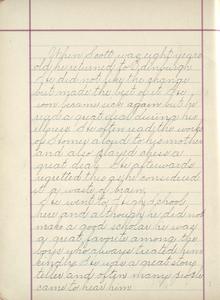 When Scott was eight years
old he returned to Edinburgh
He did not like the change
but made the best of it. He
soon became sick again but he
read a great deal during his
illness. He often read the works
of Homer aloud to his mother
and also played chess a
great deal. He afterwards
regretted this as he considered
it a waste of brain.
He went to High School
here and although he did not
make a good scholar he was
a great favorite among the
boys who always treated him
kindly. He was a great story
teller and often many people
came to hear him